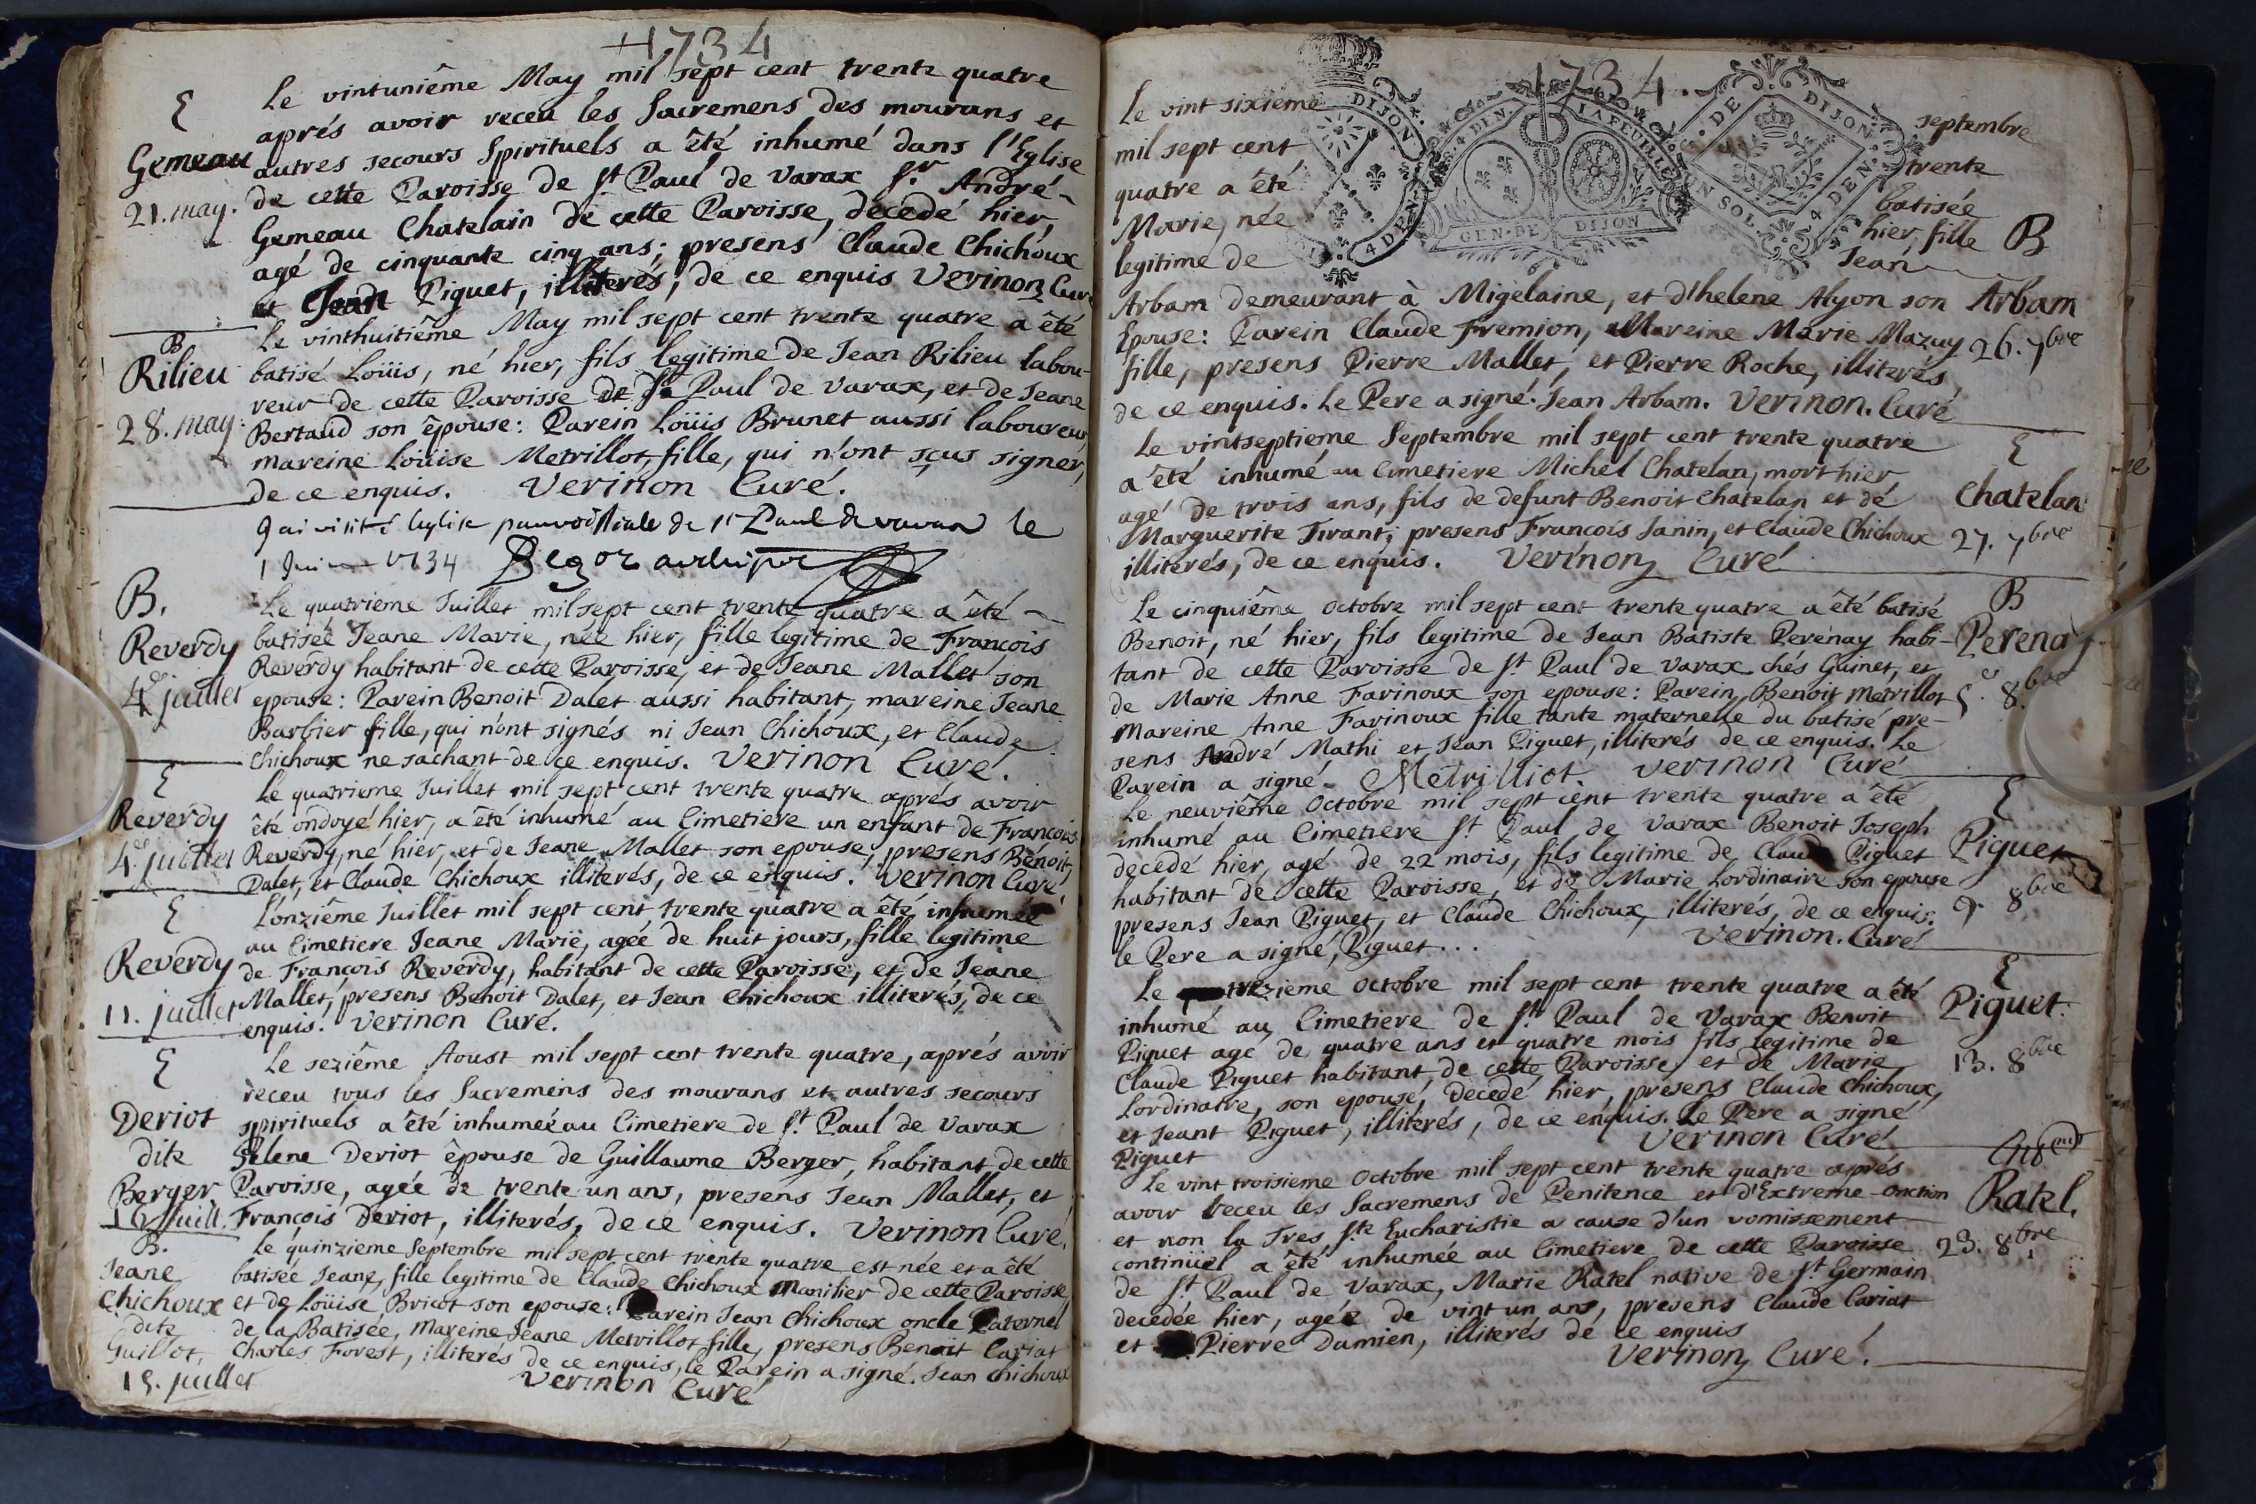 1734
Le vintunième May mil sept cent trente quatre
E
aprés avoir receu les Sacremens des mourans et
Gemeau
autres secours Spirituels a êté inhumé dans l'Eglise
21. may.
de cette Paroisse de St. Paul de Varax Sr. André
Gemeau Chatelain de cette Paroisse, décedé hier,
agé de cinquante cinq ans; presens Claude Chichoux
et Jean Piguet, illiterés, de ce enquis Verinon Curé
B
Le vinthuitième May mil sept cent trente quatre a êté
Rilieu
batisé Loüis, né hier, fils legitime de Jean Rilieu labou-
reur de cette Paroisse de St Paul de Varax, et de Jeane
28. may.
Bertaud son êpouse: Parein Loüis Brunet aussi laboureur,
mareine Loüise Metrillot, fille, qui n'ont sçus signer,
de ce enquis. Verinon Curé.
J'ai visité leglise parroissiale de St Paul de varax le
1 Juin 1734
B.
Le quatrieme Juillet mil sept cent trente quatre a êté
Reverdy
batisée Jeane Marie, née hier, fille legitime de François
Reverdy habitant de cette Paroisse, et de Jeane Mallet son
4e juillet
epouse: Parein Benoit Dalet aussi habitant, mareine Jeane
Barbier fille, qui n'ont signés ni Jean Chichoux, et Claude
Chichoux ne sachant de ce enquis. Verinon Curé.
E
Le quatrieme Juillet mil sept cent trente quatre aprés avoir
Reverdy
êté ondoyé hier, a êté inhumé au Cimetiere un enfant de François
4e juillet
Reverdy, né hier, et de Jeane Mallet son epouse, presens Benoit
Dalet, et Claude Chichoux illiterés, de ce enquis. Verinon Curé
E
L'onzième Juillet mil sept cent trente quatre a êté inhumée
au Cimetiere Jeane Marie, agée de huit jours, fille legitime
Reverdy
de François Reverdy, habitant de cette Paroisse, et de Jeane
11. juillet
Mallet, presens Benoit Dalet, et Jean Chichoux illiterés, de ce
enquis. Verinon Curé.
E
Le sezième Aoust mil sept cent trente quatre, aprés avoir
receu tous les Sacremens des mourans et autres secours
Deriot
spirituels a êté inhumée au Cimetiere de St. Paul de Varax
dite
Helene Deriot êpouse de Guillaume Berger, habitant de cette
Berger
Paroisse, agée de trente un ans, presens Jean Mallet, et
François Deriot, illiterés, de ce enquis. Verinon Curé.
B.
Le quinzieme Septembre mil sept cent trente quatre est née et a êté
Jeane
batisée Jeane, fille legitime de Claude Chichoux Manilier de cette Paroisse,
Chichoux
et de Loüise Bricot son epouse: Parein Jean Chichoux oncle Paternel
dite
de la Batisée, Mareine Jeane Metrillot fille, presens Benoit Cariat
Guillot,
Charles Forest, illiterés de ce enquis, le Parein a signé. Jean Chichoux
15. juillet
Verinon Curé
1734.
DIJON 4 DEN
4 DEN. LA FEUILLE GEN. DE DIJON
DE DIJON UN SOL. 4 DEN
Le vint sixieme septembre
mil sept cent trente
quatre a êté batisée
Marie, née hier, fille
B
legitime de Jean
Arbam demeurant à Migelaine, et d'helene Alyon son
Arbam
Epouse: Parein Claude Fremion, Mareine Marie Mazuy
26. 7bre
fille, presens Pierre Mallet, et Pierre Roche, illiterés,
de ce enquis. Le Pere a signé. Jean Arbam. Verinon. Curé
Le vintseptieme Septembre mil sept cent trente quatre
E
a êté inhumé au Cimetiere Michel Chatelan, mort hier
agé de trois ans, fils de defunt Benoit Chatelan et de
Chatelan
Marguerite Tirant; presens François Janin, et Claude Chichoux
27. 7bre
illiterés, de ce enquis. Verinon Curé
Le cinquième octobre mil sept cent trente quatre a êté batisé
B
Benoit, né hier, fils legitime de Jean Batiste Perenay habi-
Perenay
tant de cette Paroisse de St. Paul de Varax chés Guinet, et
de Marie Anne Farinoux son epouse: Parein Benoit Metrillot
5e. 8bre
Mareine Anne Farinoux fille tante maternelle du batisé pre-
sens André Mathi et Jean Piguet, illiterés de ce enquis. Le
Parein a signé. Metrilliot. Verinon Curé
Le neuvième Octobre mil sept cent trente quatre a êté
E
inhumé au Cimetiere St. Paul de Varax Benoit Joseph
decedé hier, agé de 22 mois, fils legitime de Claude Piguet
Piguet
habitant de cette Paroisse, et de Marie Lordinaire son epouse
9. 8bre
presens Jean Piguet, et Claude Chichoux, illiterés, de ce enquis;
le Pere a signé, Piguet... Verinon. Curé
Le trezieme octobre mil sept cent trente quatre a êté
E
inhumé au Cimetiere de St. Paul de Varax Benoit
Piguet.
Piguet agé de quatre ans et quatre mois fils legitime de
Claude Piguet habitant, de cette Paroisse, et de Marie
13. 8bre
Lordinaire, son epouse, decedé hier, presens Claude Chichoux,
et Jeant Piguet, illiterés, de ce enquis. Le Pere a signé
Piguet Verinon Curé
Le vint troisieme Octobre mil sept cent trente quatre aprés
avoir receu les Sacremens de Penitence et d'Extreme-Onction
Ratel.
et non la Tres Ste Eucharistie a cause d'un vomissement
continüel a êté inhumée au Cimetiere de cette Paroisse
23. 8bre
de St. Paul de Varax, Marie Ratel native de St. Germain
decedée hier, agée de vint un ans, presens Claude Cariat
et Pierre Damien, illiterés de ce enquis
Verinon Curé.